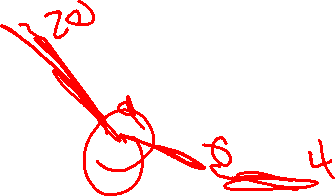 20
6
4